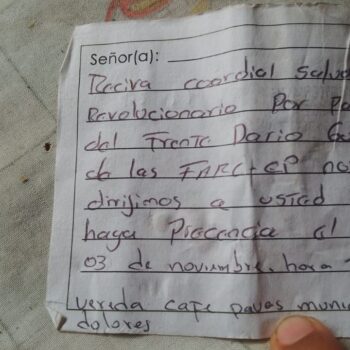 Señor(a):
Reciva coordial Salud
Revolucionario Por Pa
del Frente Dario Gu
de las FARC-EP no
dirijimos a usted
haga Precencia al
03 de noviembre. hora
vereda cafe pavas muni
dolores